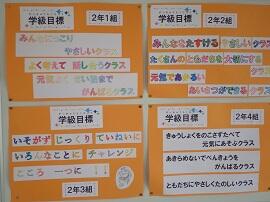 学級目標
2年1組
みんなにっこり
やさしいクラス
よく考えて 話し合うクラス
元気よく さい後まで
がんばるクラス
学級目標
2年2組
みんなをたすける やさしいクラス
たくさんのともだちを大切にする
元気であかるい
あいさつができるクラス
学級目標
いそがず じっくり ていねいに
いろんなことに チャレンジ
こころ 一つに !!!
2年3組
学級目標
2年4組
きゅうしょくをのこさずたべて
元気にあそぶクラス
あきらめないでべんきょうを
がんばるクラス
ともだちにやさしくたのしいクラス